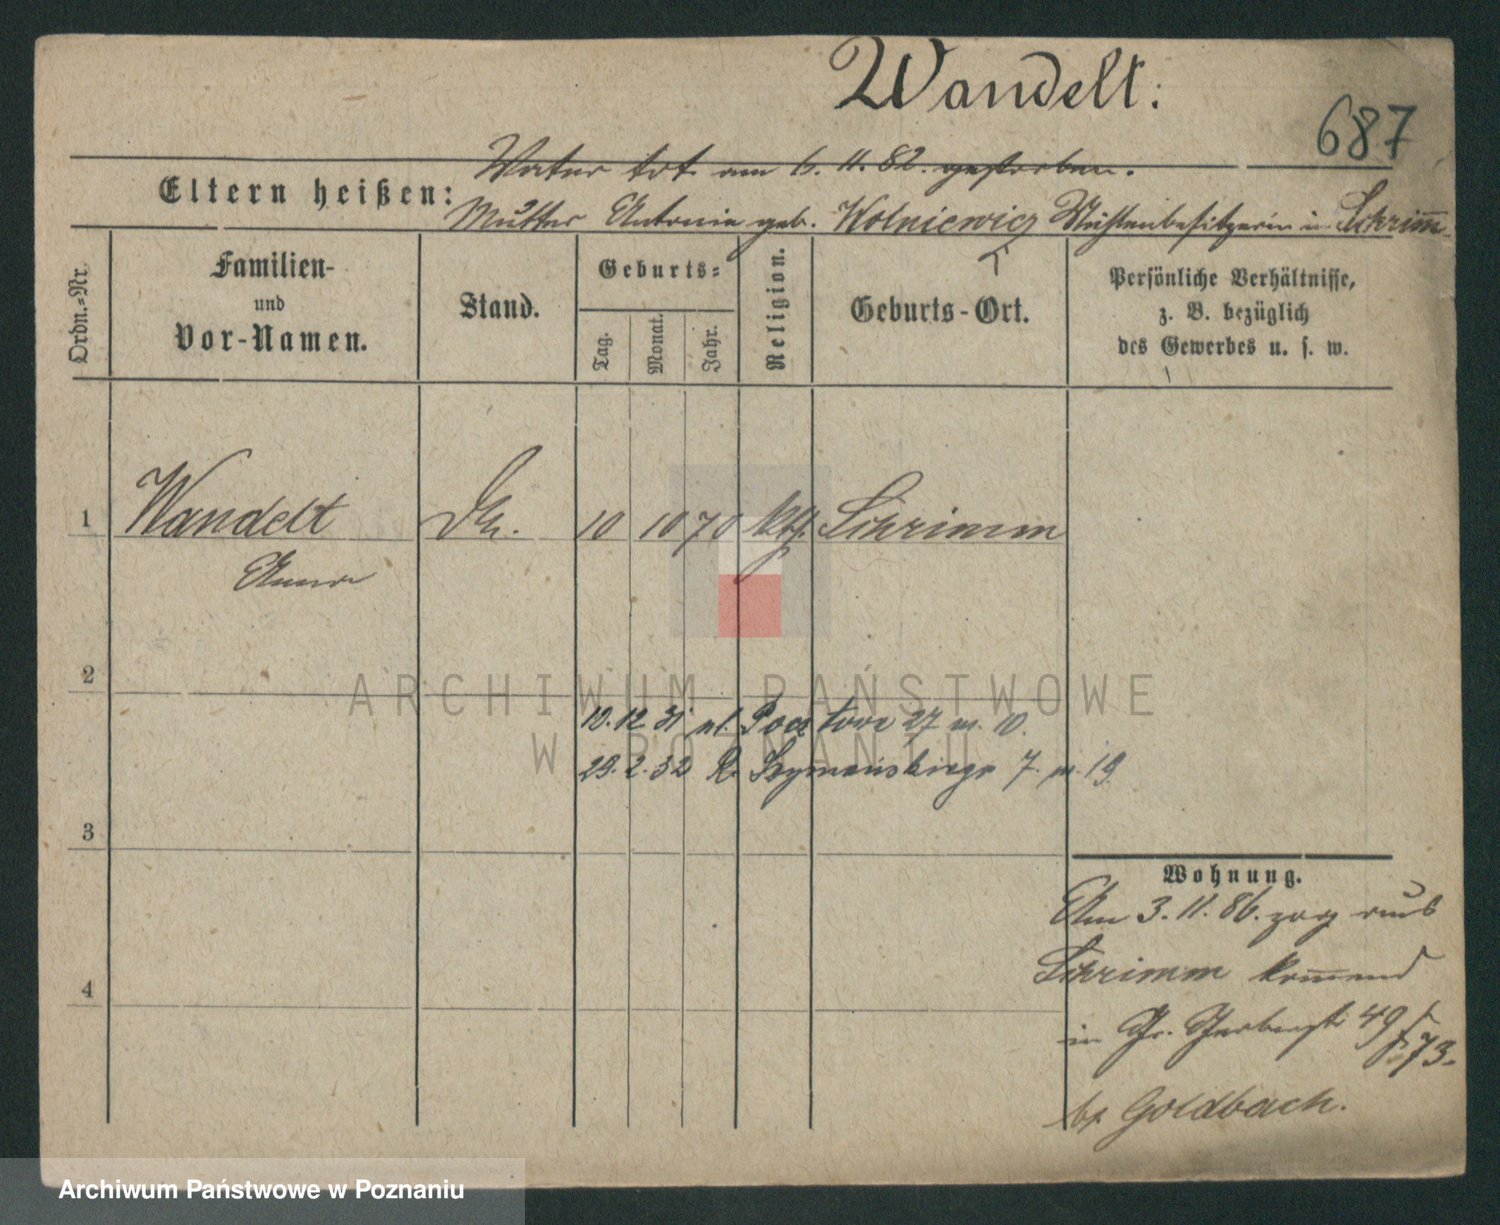 Wandelt.
687
Vater tot am 6. 11. 82. gestorben.
Eltern heißen:
Mutter Antonie geb. Wolniewicz Mühlenbesitzerin in Schrimm
Ordn.=Nr.
Familien-
und
Vor-Namen.
Stand.
Geburts=
Tag.
Monat.
Jahr.
Religion.
Geburts-Ort.
Persönliche Verhältnisse,
z. B. bezüglich
des Gewerbes u. s. w.
1 Wandelt 10 10 70 kth. Schrimm
Anna
2
10. 12 31 ul. Pocztowa 27 m. 10.
29. 2. 32 R. Szymańskiego 7. m. 19
3
Wohnung.
Am 3. 11. 86. zog aus
Schrimm kommend
4
in Gr. Gerberstr 49 f. 73.
bei Goldbach.
ARCHIWUM PAŃSTWOWE
W POZNANIU
Archiwum Państwowe w Poznaniu